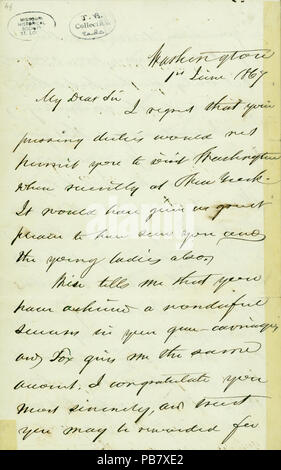 MISSOURI
HISTORICAL
SOCIETY
ST. LOUIS
J. B.
Collection
Washington
1st June 1867
My Dear Sir
I regret that your
pressing duties would not
permit you to visit Washington
when recently at New York.
It would have given us great
pleasure to have seen you and
the young ladies also,
Wise tells me that you
have achieved a wonderful
success in your gun-carriages
and Fox gives me the same
account. I congratulate you
most sincerely, and trust
you may be rewarded for
alamy
alamy
PB7XE2